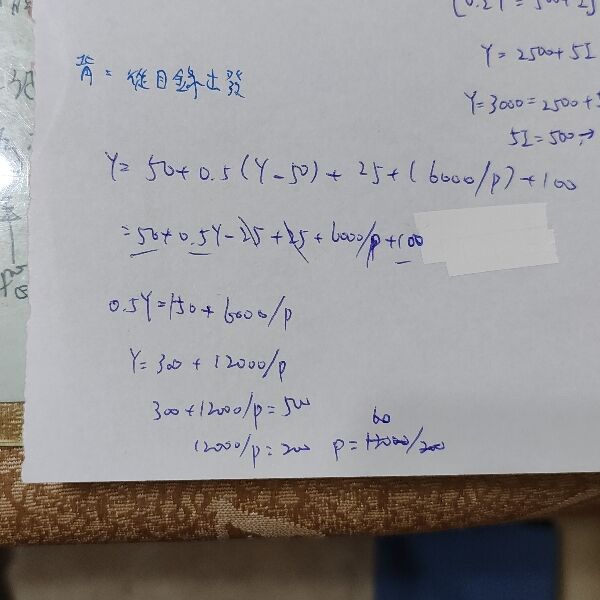 Y = 2500 + 5I
Y = 3000 = 2500 + 5
5I = 500 →
背 = 從目錄出發
Y = 50 + 0.5 (Y - 50) + 25 + (6000/P) + 100
= 50 + 0.5Y - 25 + 25 + 6000/P + 100
0.5Y = 150 + 6000/P
Y = 300 + 12000/P
300 + 12000/P = 500
12000/P = 200 P = 12000/200
60